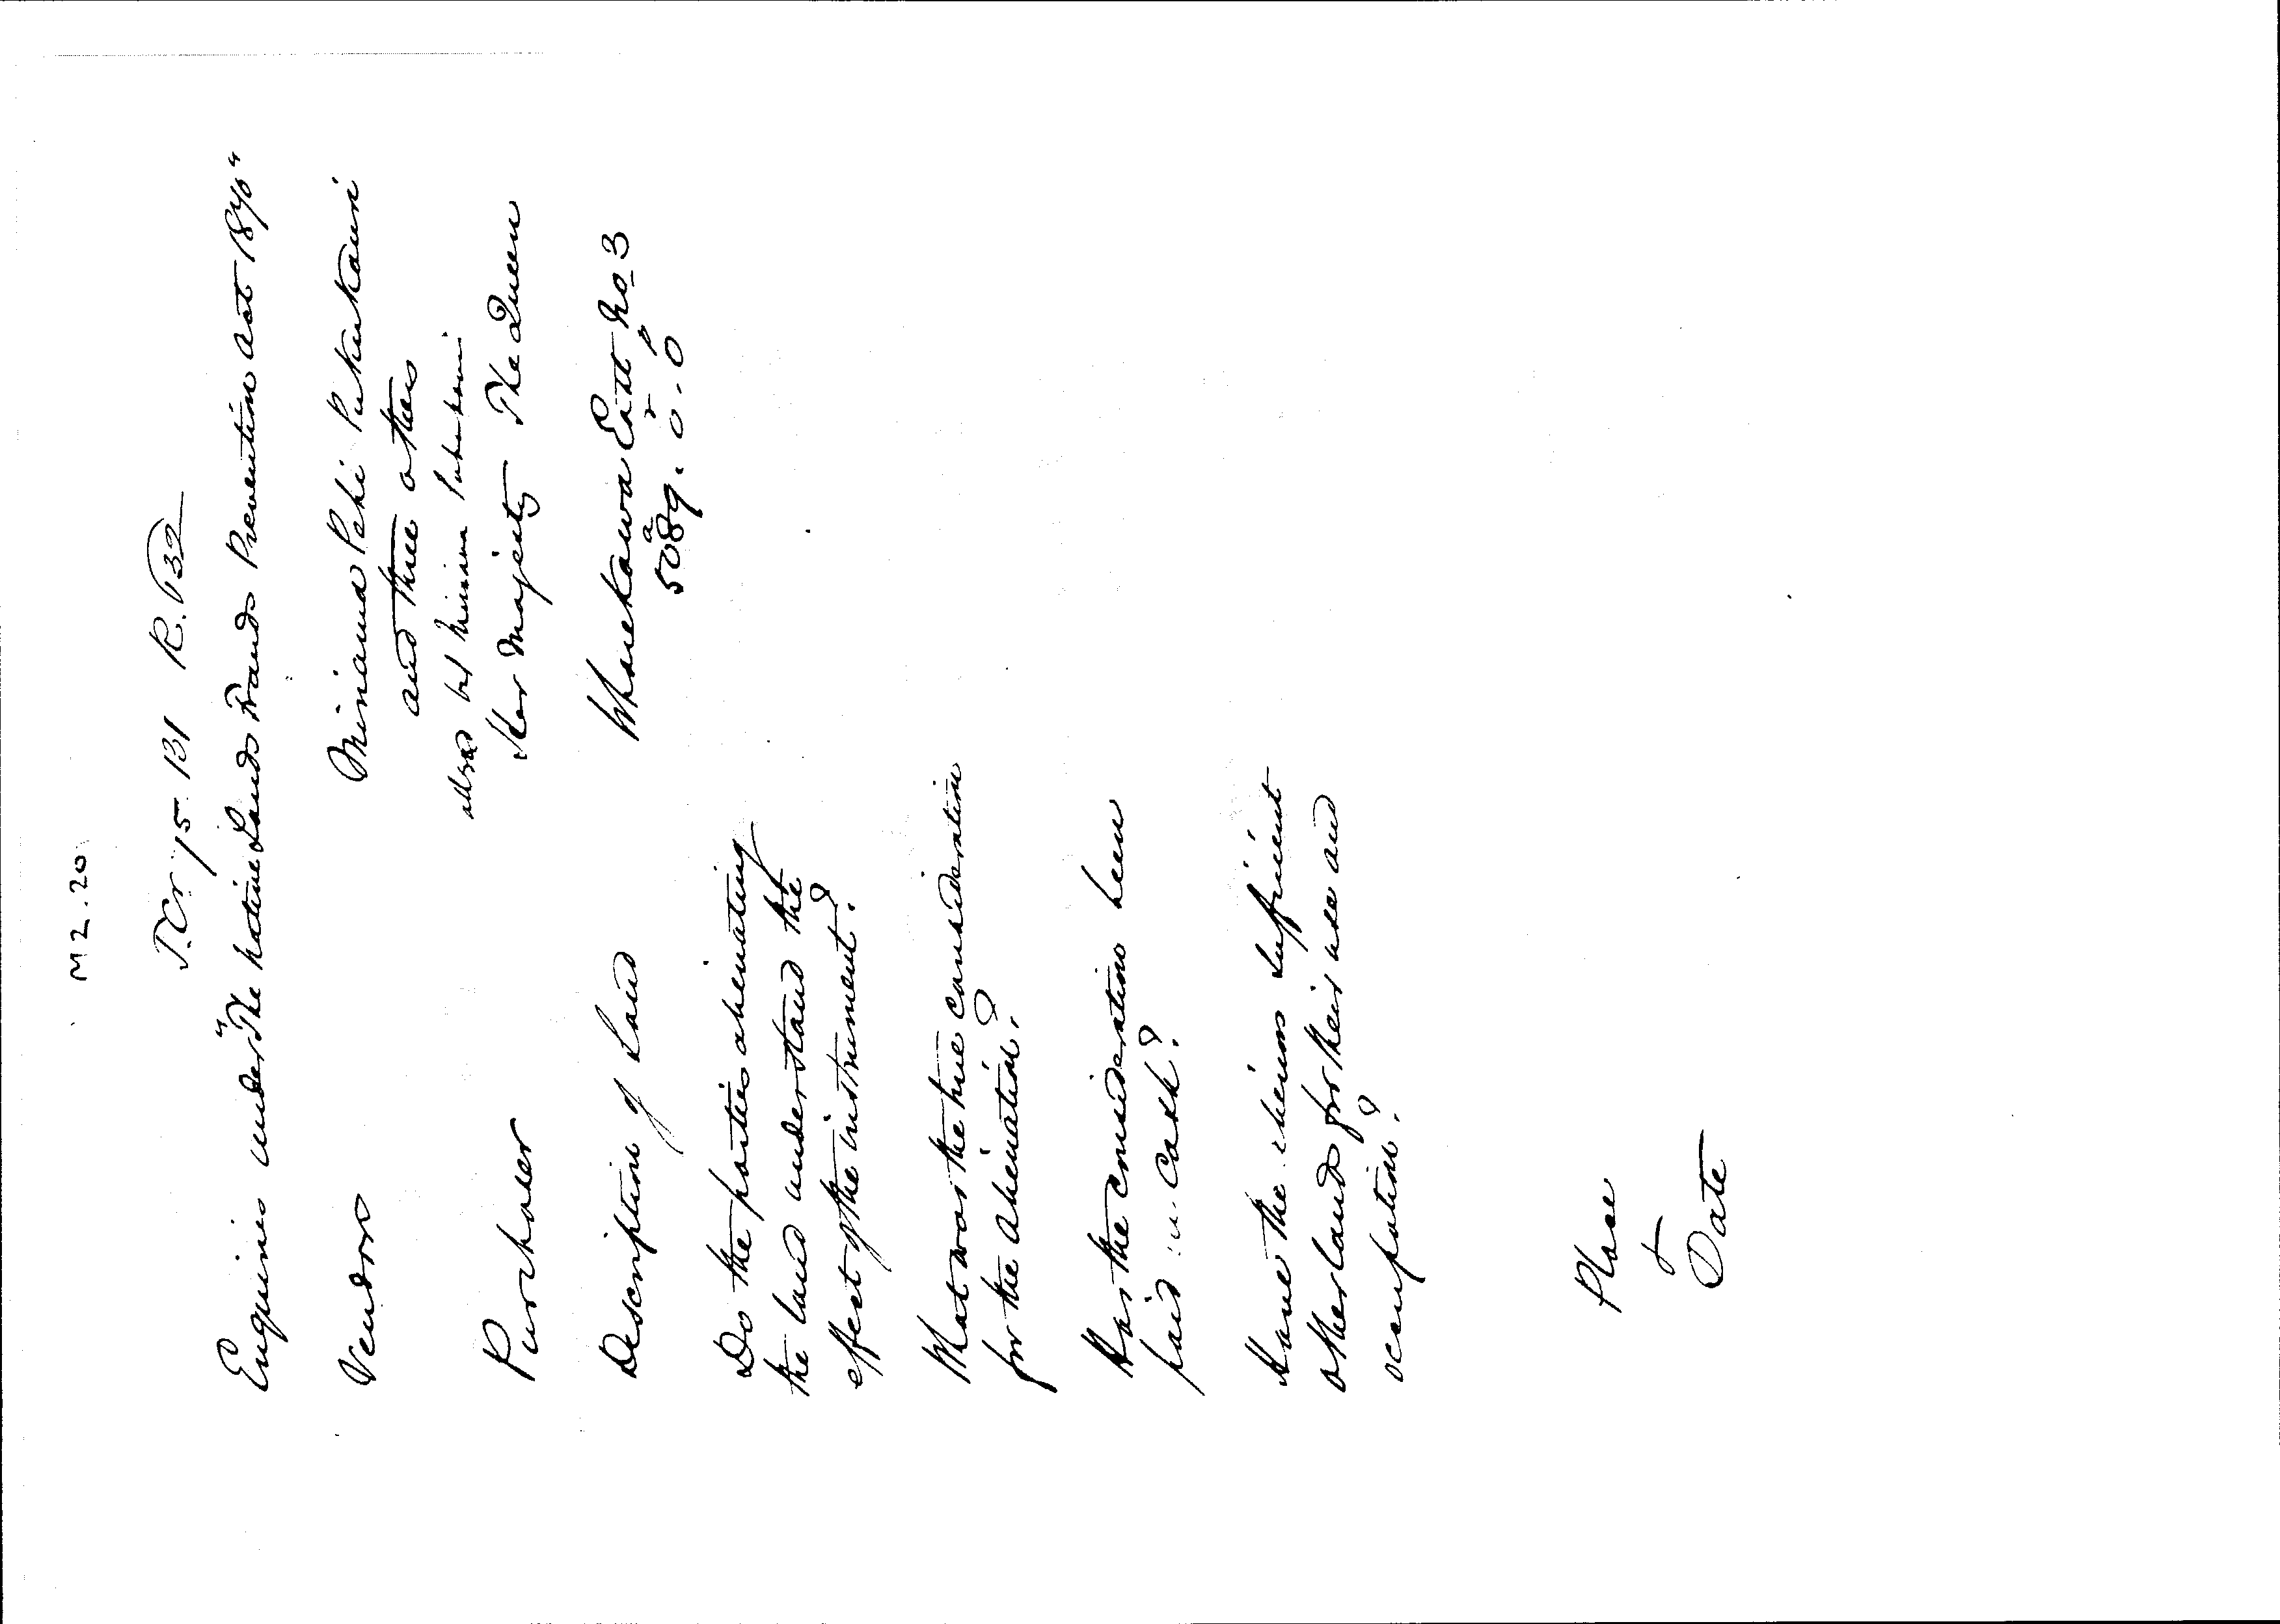 M2.20
T.Cr/15.131 R.132
Enquiries under "The Native Lands Frauds Prevention Act 1870"
Vendors Miriama Pehi Pukukauri
and three others
but Miriama Pukukauri
Purchaser Her Majesty The Queen
Description of Land Wharekawa East No 3
5089a. 0r. 0p
Do the parties alienating
the land understand the
effect of the instrument?
What was the true consideration
for the alienation?
Has the consideration been
paid in Cash?
Have the sufficient
other lands for their use and
occupation?
Place
&
Date